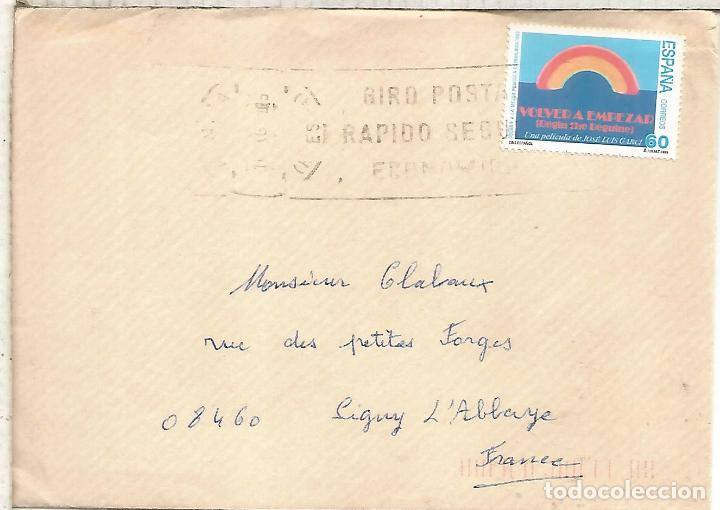 GIRO POSTA
RAPIDO SEGU
ECONOMI
ESPAÑA
CORREOS
VOLVER A EMPEZAR
(Begin the Beguine)
Una película de JOSÉ LUIS GARCI
CINE ESPAÑOL
60
Monsieur Clabaux
rue des petites Forges
08460 Signy L'Abbaye
France
todocoleccion.net